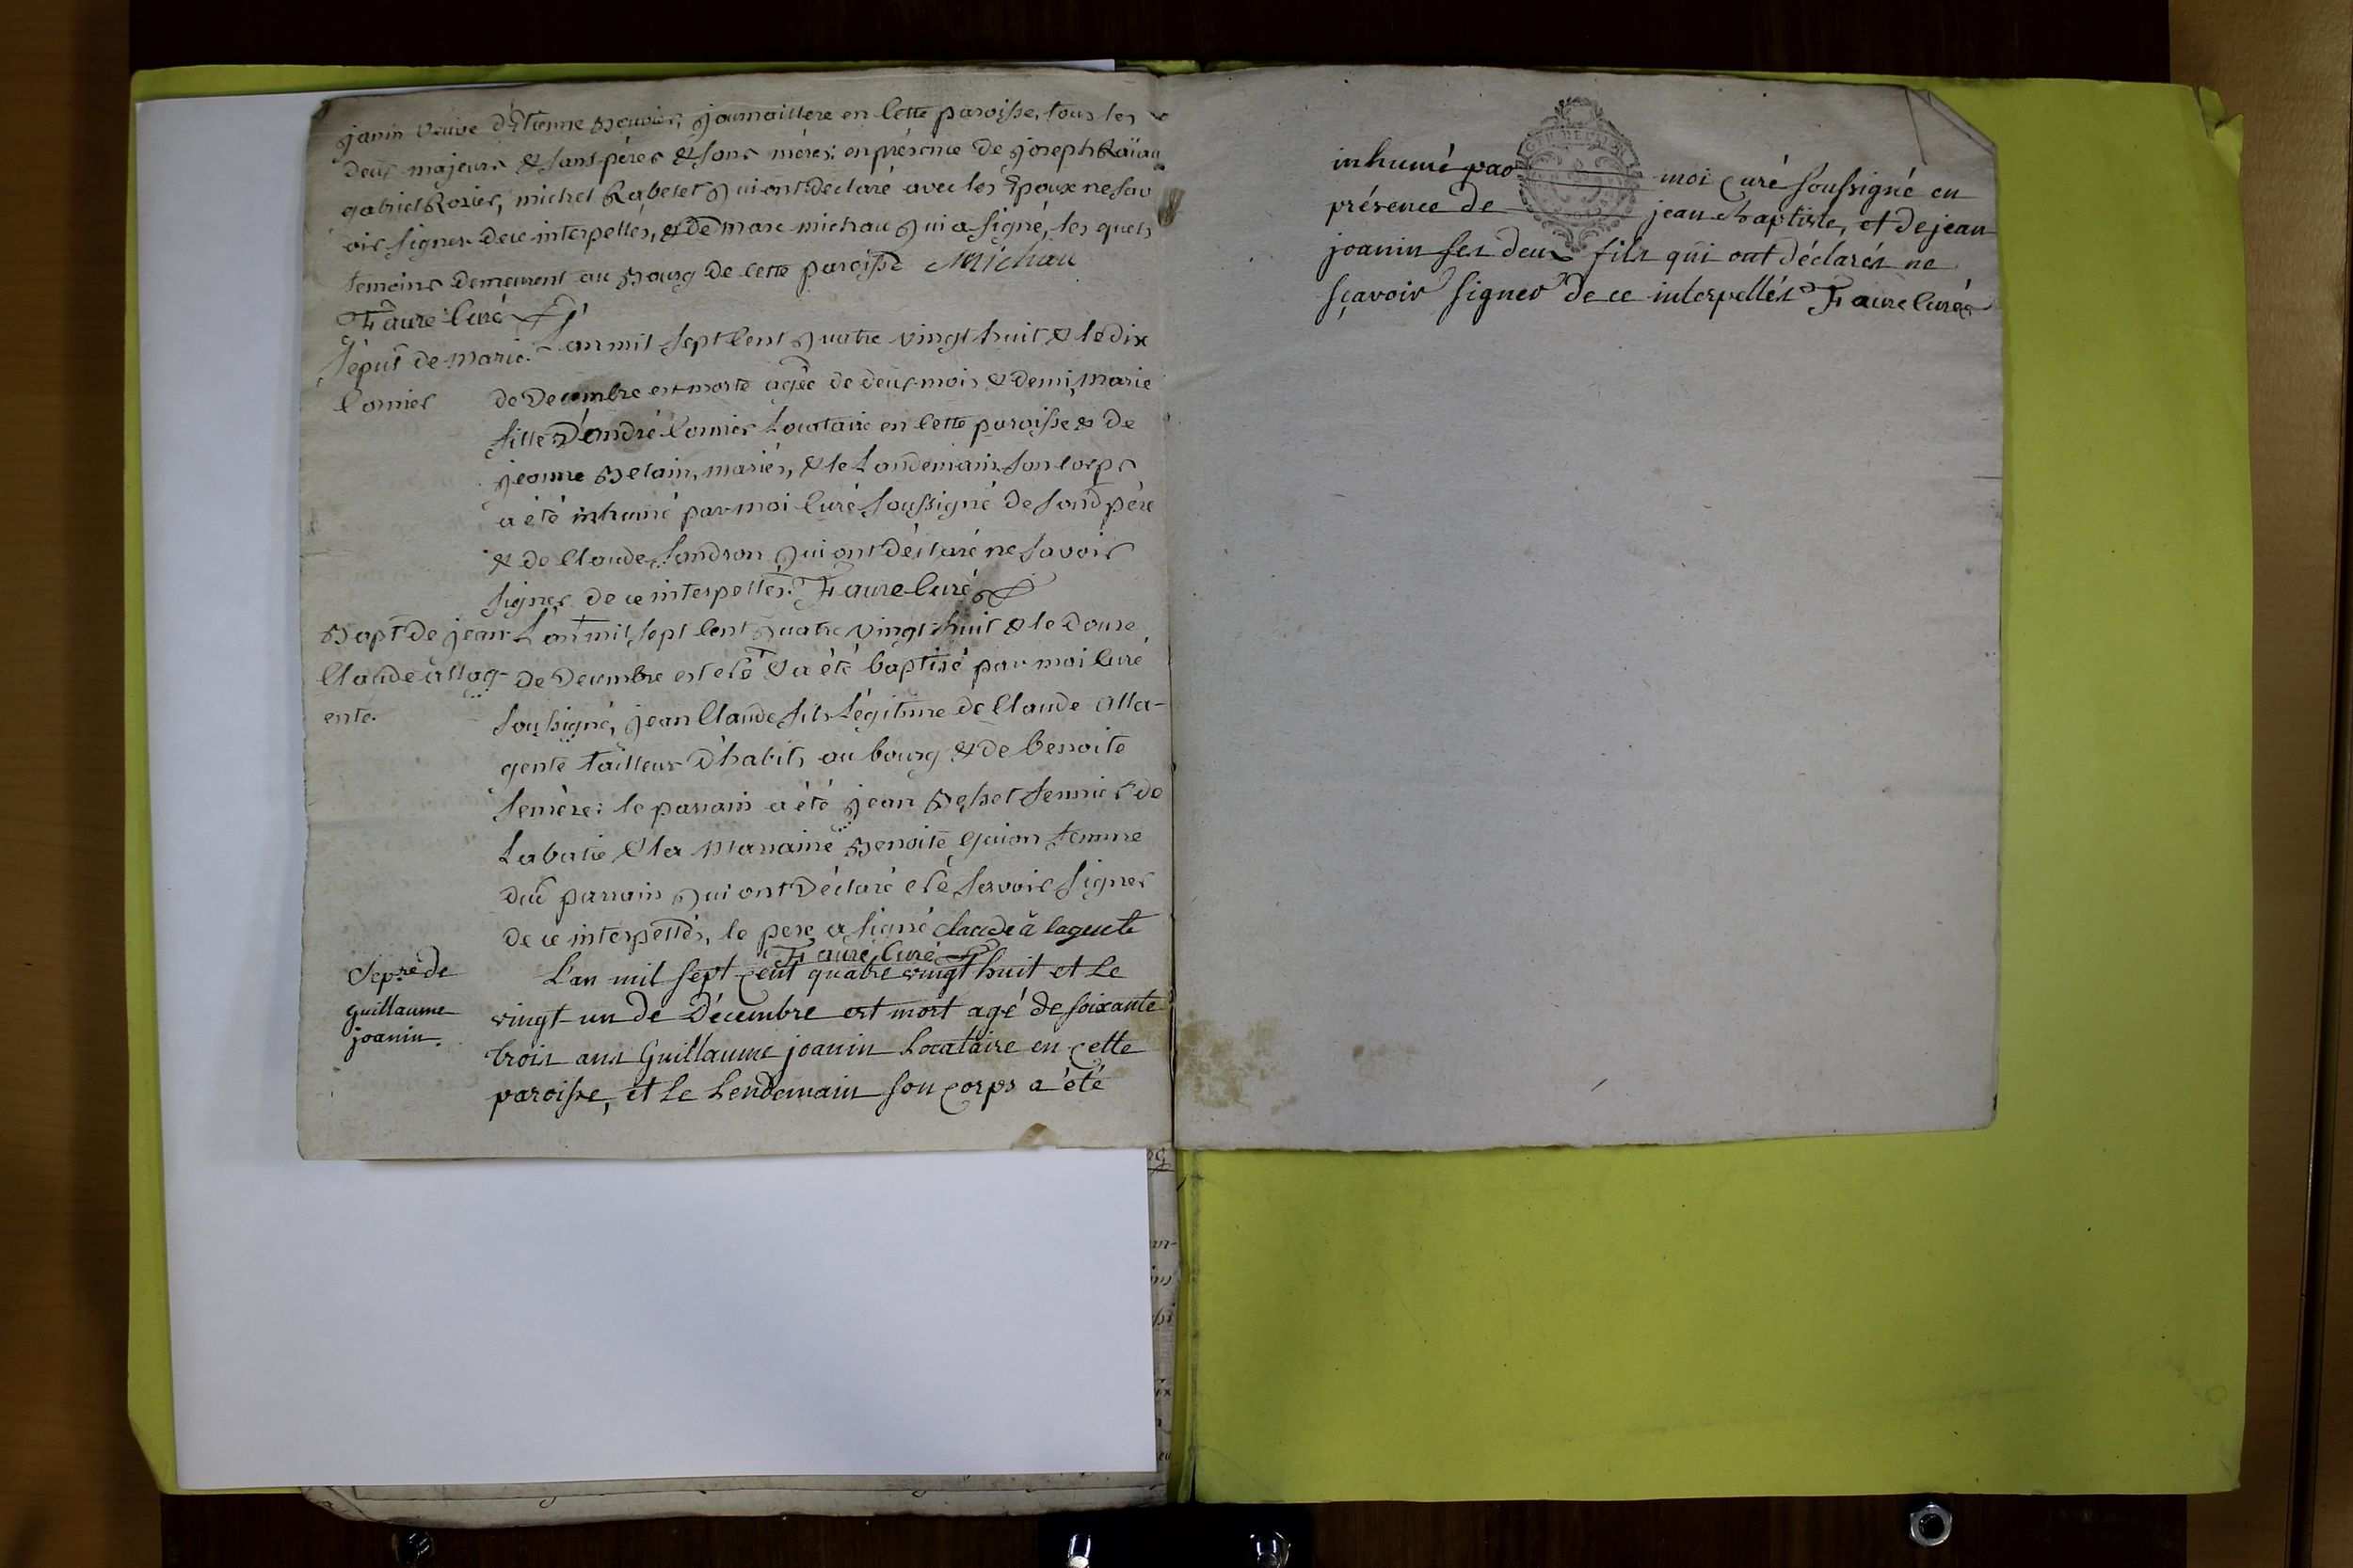 janin veuve d'Etienne journaillere en cette paroisse, tous les
deux majeurs & sans pères & sans mères: en présence de joseph
gabriel Rozier, michel Rabelet qui ont declaré avec les Epoux ne sav
oir signer de ce interpellés, & de marc michau qui a signé, les quels
temoins demeurent au Bourg de cette paroisse Michau
Faure curé
Sepus de marie L'an mil sept cent quatre vingt huit & le dix
Cornier de Decembre est morte agée de deux mois & demi, marie
fille d'andré Cornier Locataire en cette paroisse & de
jeanne Belain, mariés, & le Landemain son corps
a été inhumé par moi curé soussigné de sond père
& de Claude qui ont déclaré ne savoir
signer de ce interpellés. Faure curé
Bapt de jean L'an mil sept cent quatre vingt huit & le douse
Claude allag- de Decembre est né & a été baptisé par moi curé
ente. soussigné, jean Claude fils Légitime de Claude Alla-
gente tailleur d'habits au bourg & de benoite
semère: le parrain a été jean Besset fermier de
Labatie & la Marraine Benoite Guion femme
dud parrain qui ont déclaré ne savoir signer
de ce interpellés, le pere a signé claude à lagente
Faure curé
Sepre de L'an mil sept cent quatre vingt huit et le
guillaume vingt un de Décembre est mort agé de soixante
joanin. trois ans Guillaume joanin Locataire en cette
paroisse, et le Lendemain son corps a été
inhumé par moi curé soussigné en
présence de jean baptiste, et de jean
joanin ses deux fils qui ont déclarés ne
sçavoir signer de ce interpellés Faure curé